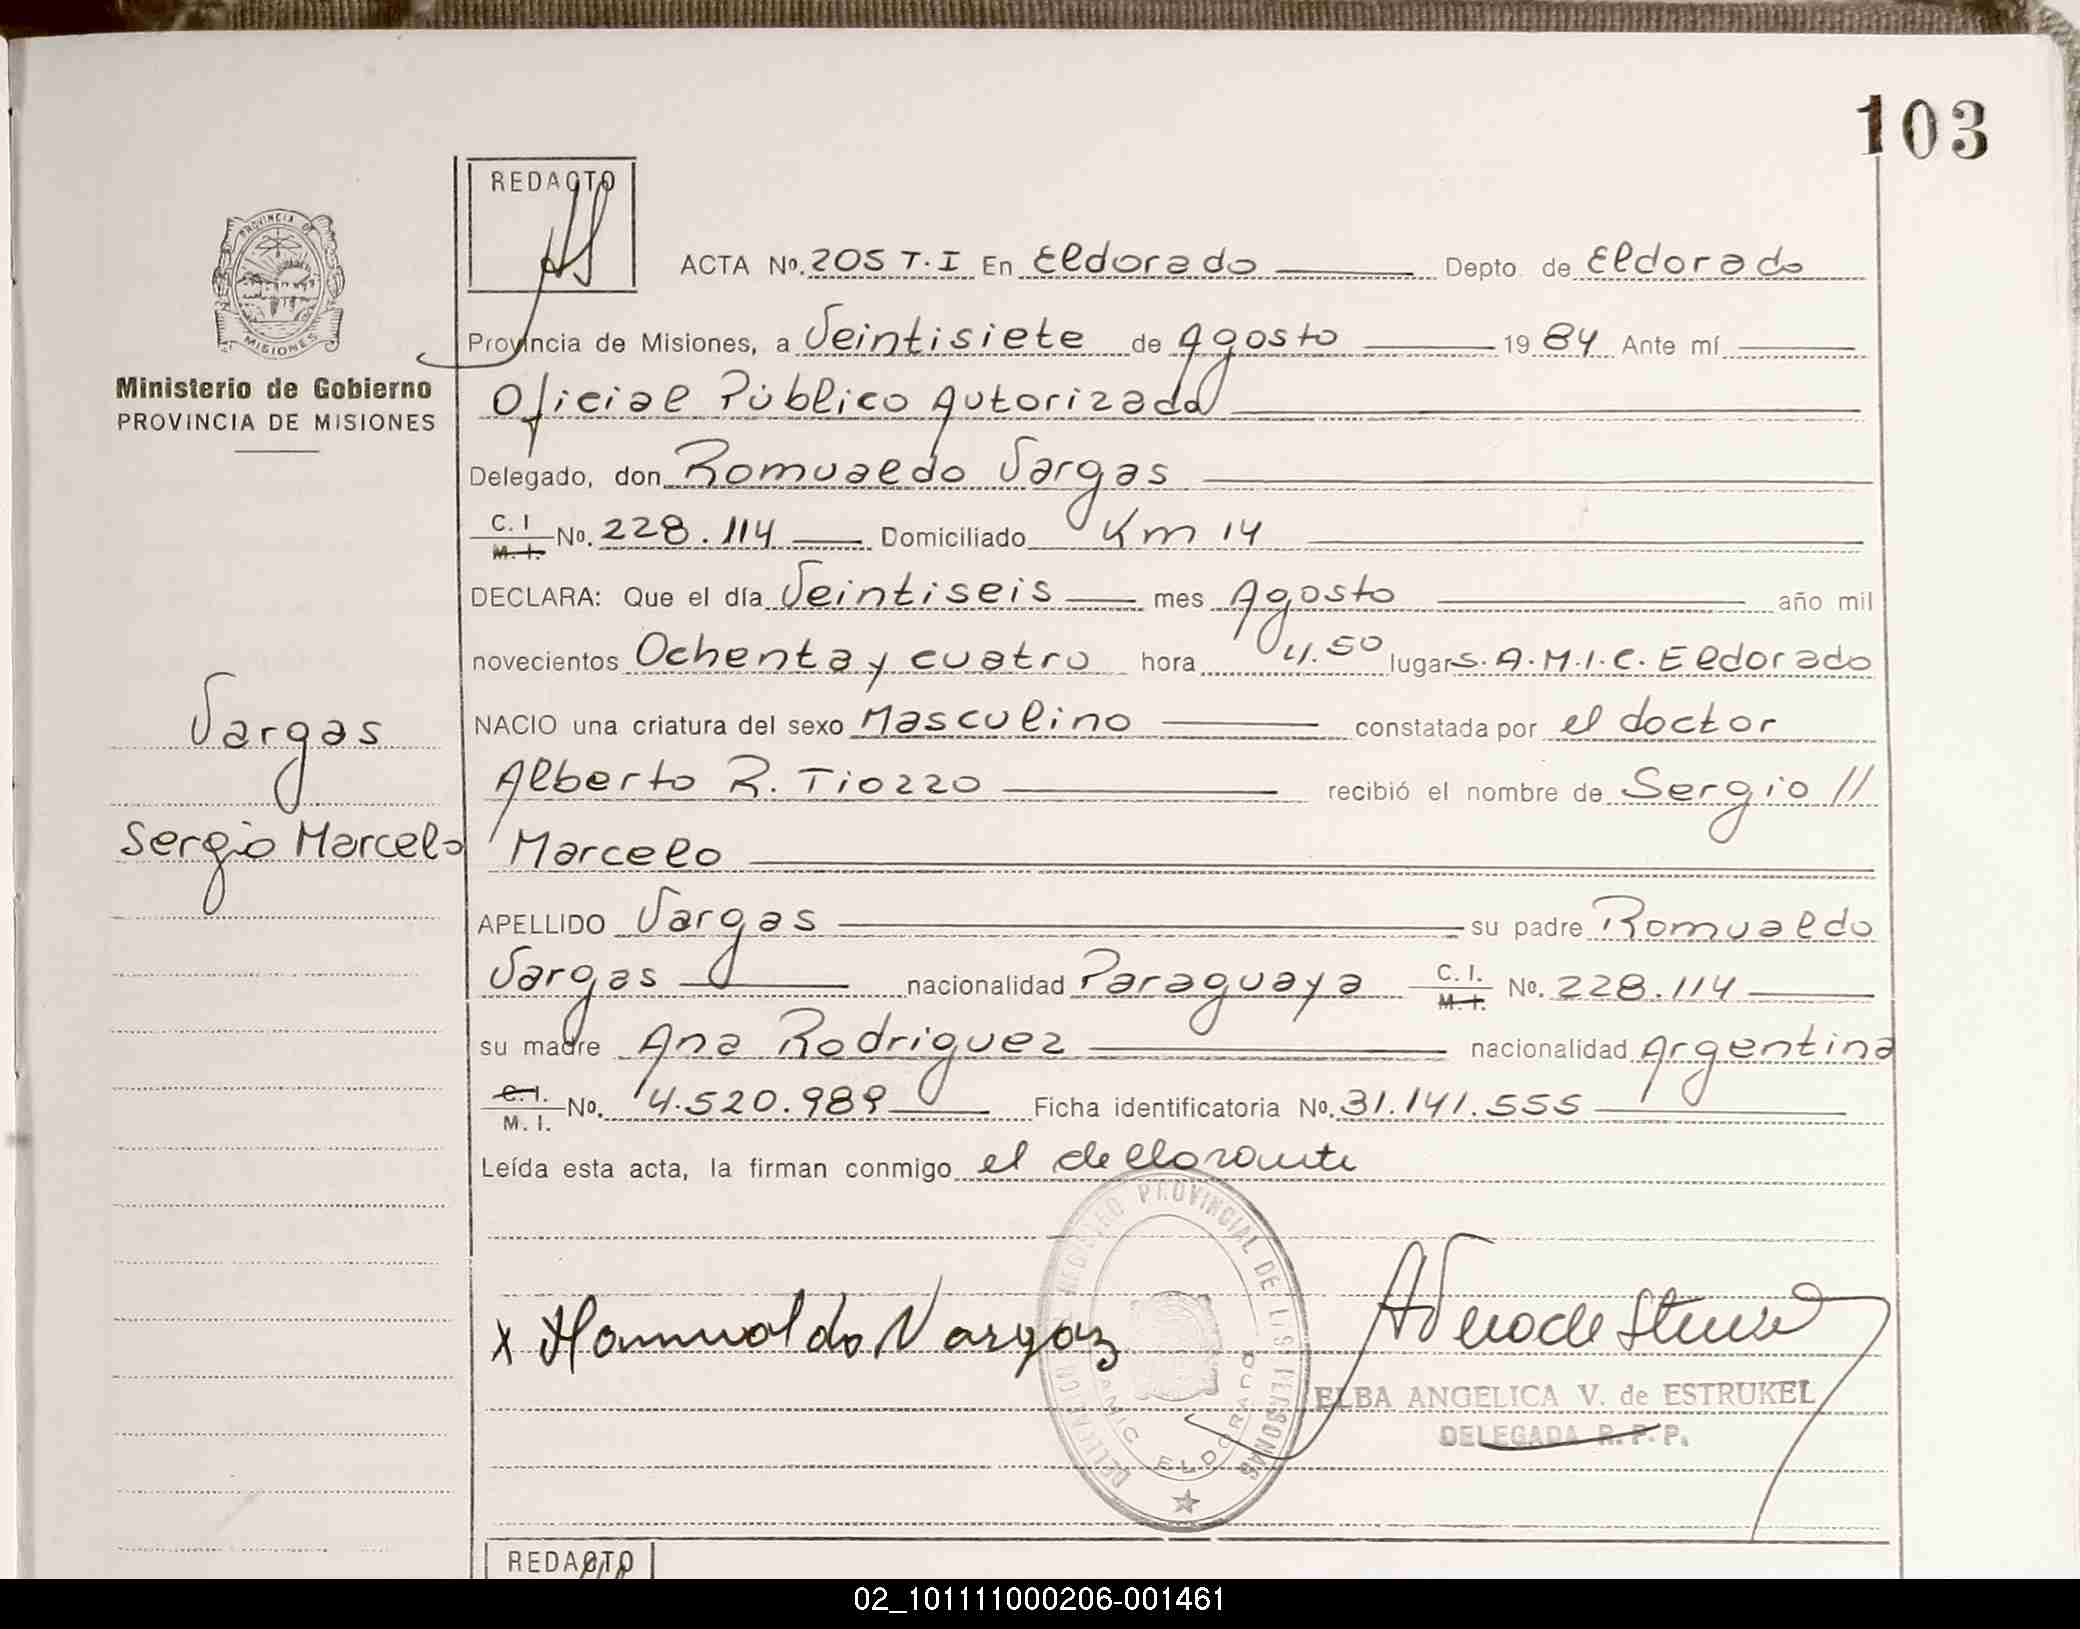 103
REDACTO
PROVINCIA DE
MISIONES
Ministerio de Gobierno
PROVINCIA DE MISIONES
ACTA No. 205 T.I En Eldorado Depto de Eldorado
Provincia de Misiones, a Veintisiete de Agosto 1984 Ante mí
Oficial Público Autorizada
Delegado, don Romualdo Vargas
C. I M. I. No. 228.114 Domiciliado Km 14
DECLARA: Que el día Veintiseis mes Agosto año mil
novecientos Ochenta y cuatro hora 4.50 lugar S.A.M.I.C. Eldorado
NACIO una criatura del sexo Masculino constatada por el doctor
Alberto R. Tiozzo recibió el nombre de Sergio //
Marcelo
Vargas
Sergio Marcelo
APELLIDO Vargas su padre Romualdo
Vargas nacionalidad Paraguaya C. I. M. I. No. 228.114
su madre Ana Rodriguez nacionalidad Argentina
C. I. M. I. No. 4.520.989 Ficha identificatoria No. 31.141.555
Leída esta acta, la firman conmigo el declarante
REGISTRO PROVINCIAL DE LAS PERSONAS
ELDORADO
x Romualdo Vargas
ELBA ANGELICA V. de ESTRUKEL
DELEGADA R. P. P.
REDACTO
02_101111000206-001461